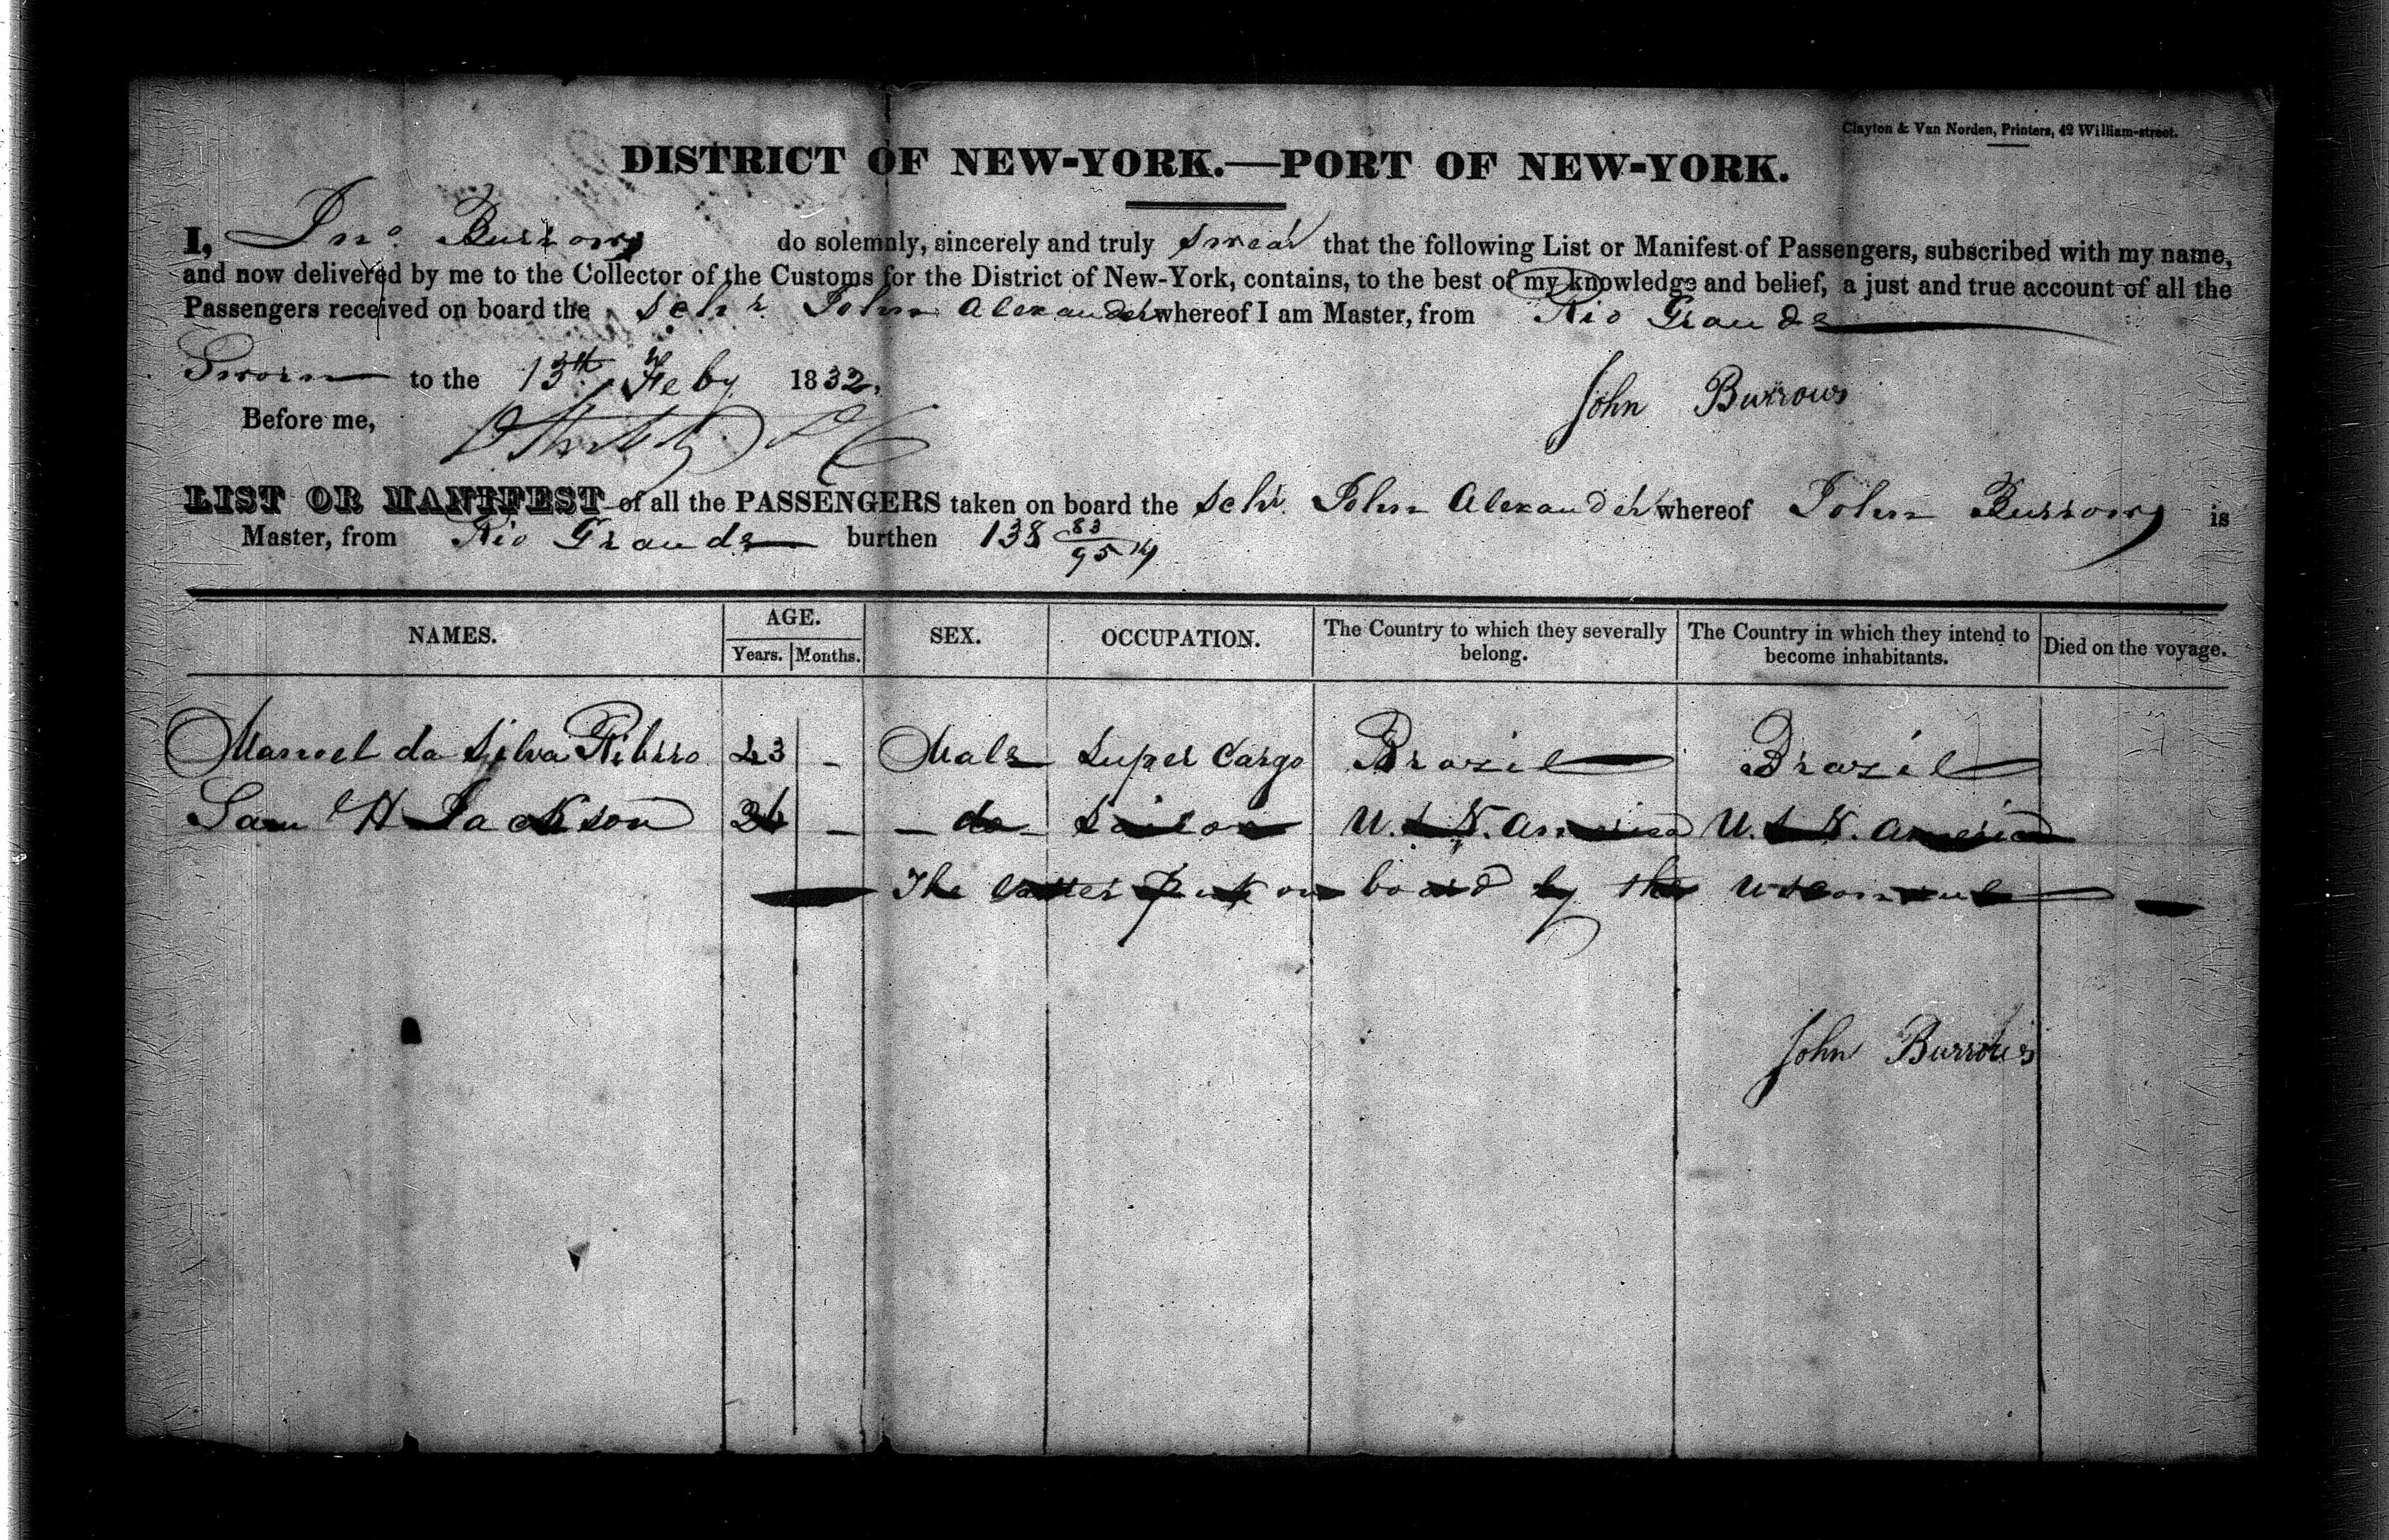 Clayton & Van Norden, Printers, 49 William-street.
DISTRICT OF NEW-YORK.—PORT OF NEW-YORK.
I, Jno. Burrows do solemnly, sincerely and truly swear that the following List or Manifest of Passengers, subscribed with my name,
and now delivered by me to the Collector of the Customs for the District of New-York, contains, to the best of my knowledge and belief, a just and true account of all the
Passengers received on board the Schr. John Alexander whereof I am Master, from Rio Grande
Sworn to the 13th Feby. 1832.
John Burrows
Before me,
LIST OR MANIFEST of all the PASSENGERS taken on board the Schr. John Alexander whereof John Burrows is
Master, from Rio Grande burthen 138 83/95
NAMES. AGE. SEX. OCCUPATION. The Country to which they severally belong. The Country in which they intend to become inhabitants. Died on the voyage.
Years. Months.
Manoel da Silva Ribiro 23 - Male Super Cargo Brazil Brazil
Saml H Jackson - do - Sailor U. S. N. America U. S. N. America
The latter put on board by the US Consul
John Burrows